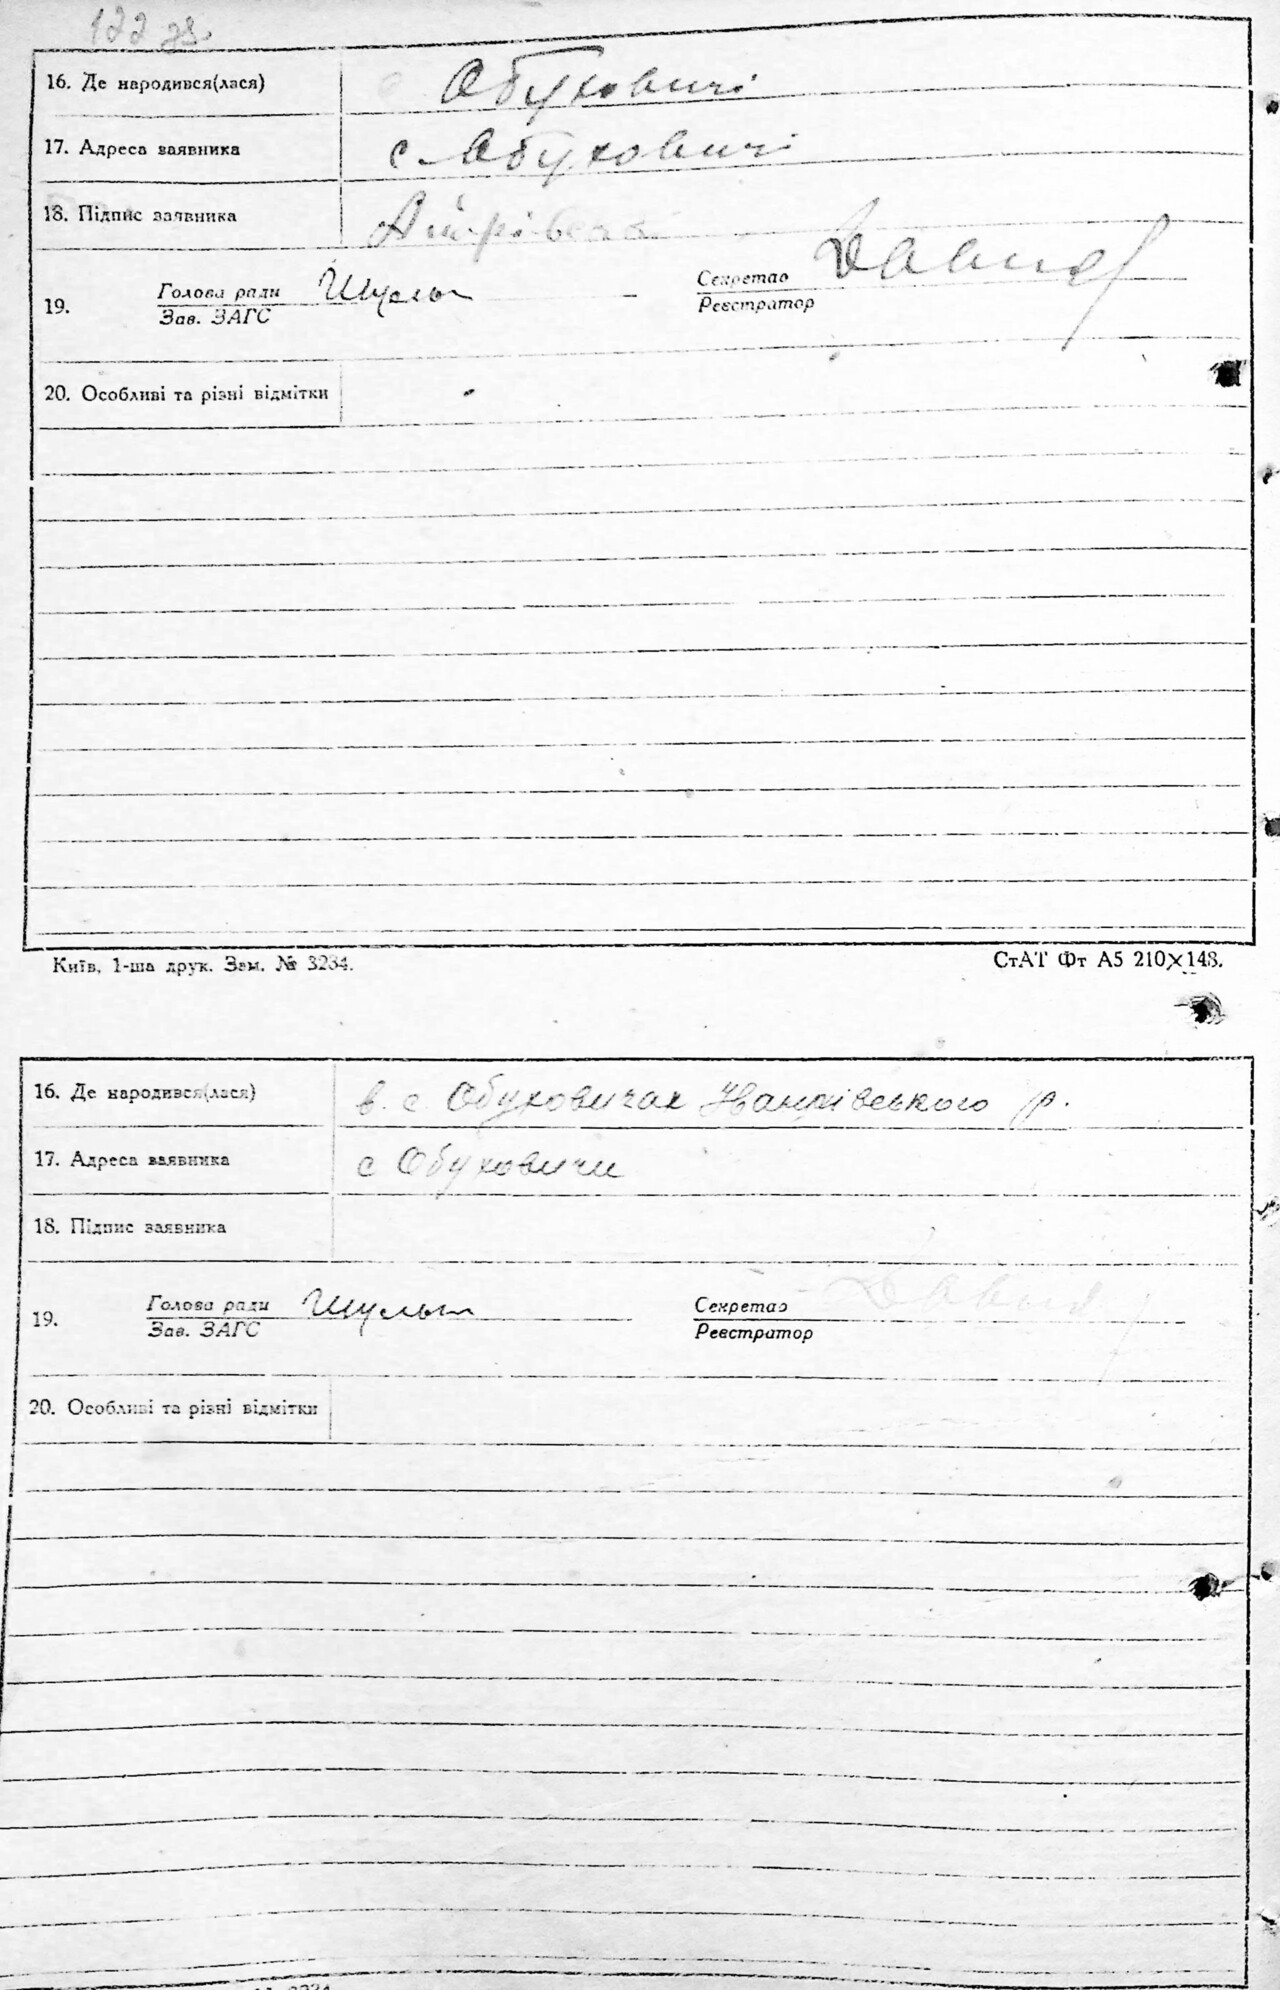 122 зв.
16. Де народився(лася) Обуховичі
17. Адреса заявника с. Обуховичі
18. Підпис заявника
19. Голова ради Шульг Секретар
Зав. ЗАГС Реєстратор
20. Особливі та різні відмітки
Київ, 1-ша друк. Зам. № 3234. СтАТ Фт А5 210×148.
16. Де народився(лася) в. с Обуховичах Іванківського р.
17. Адреса заявника с Обуховичи
18. Підпис заявника
19. Голова ради Шульг Секретар
Зав. ЗАГС Реєстратор
20. Особливі та різні відмітки